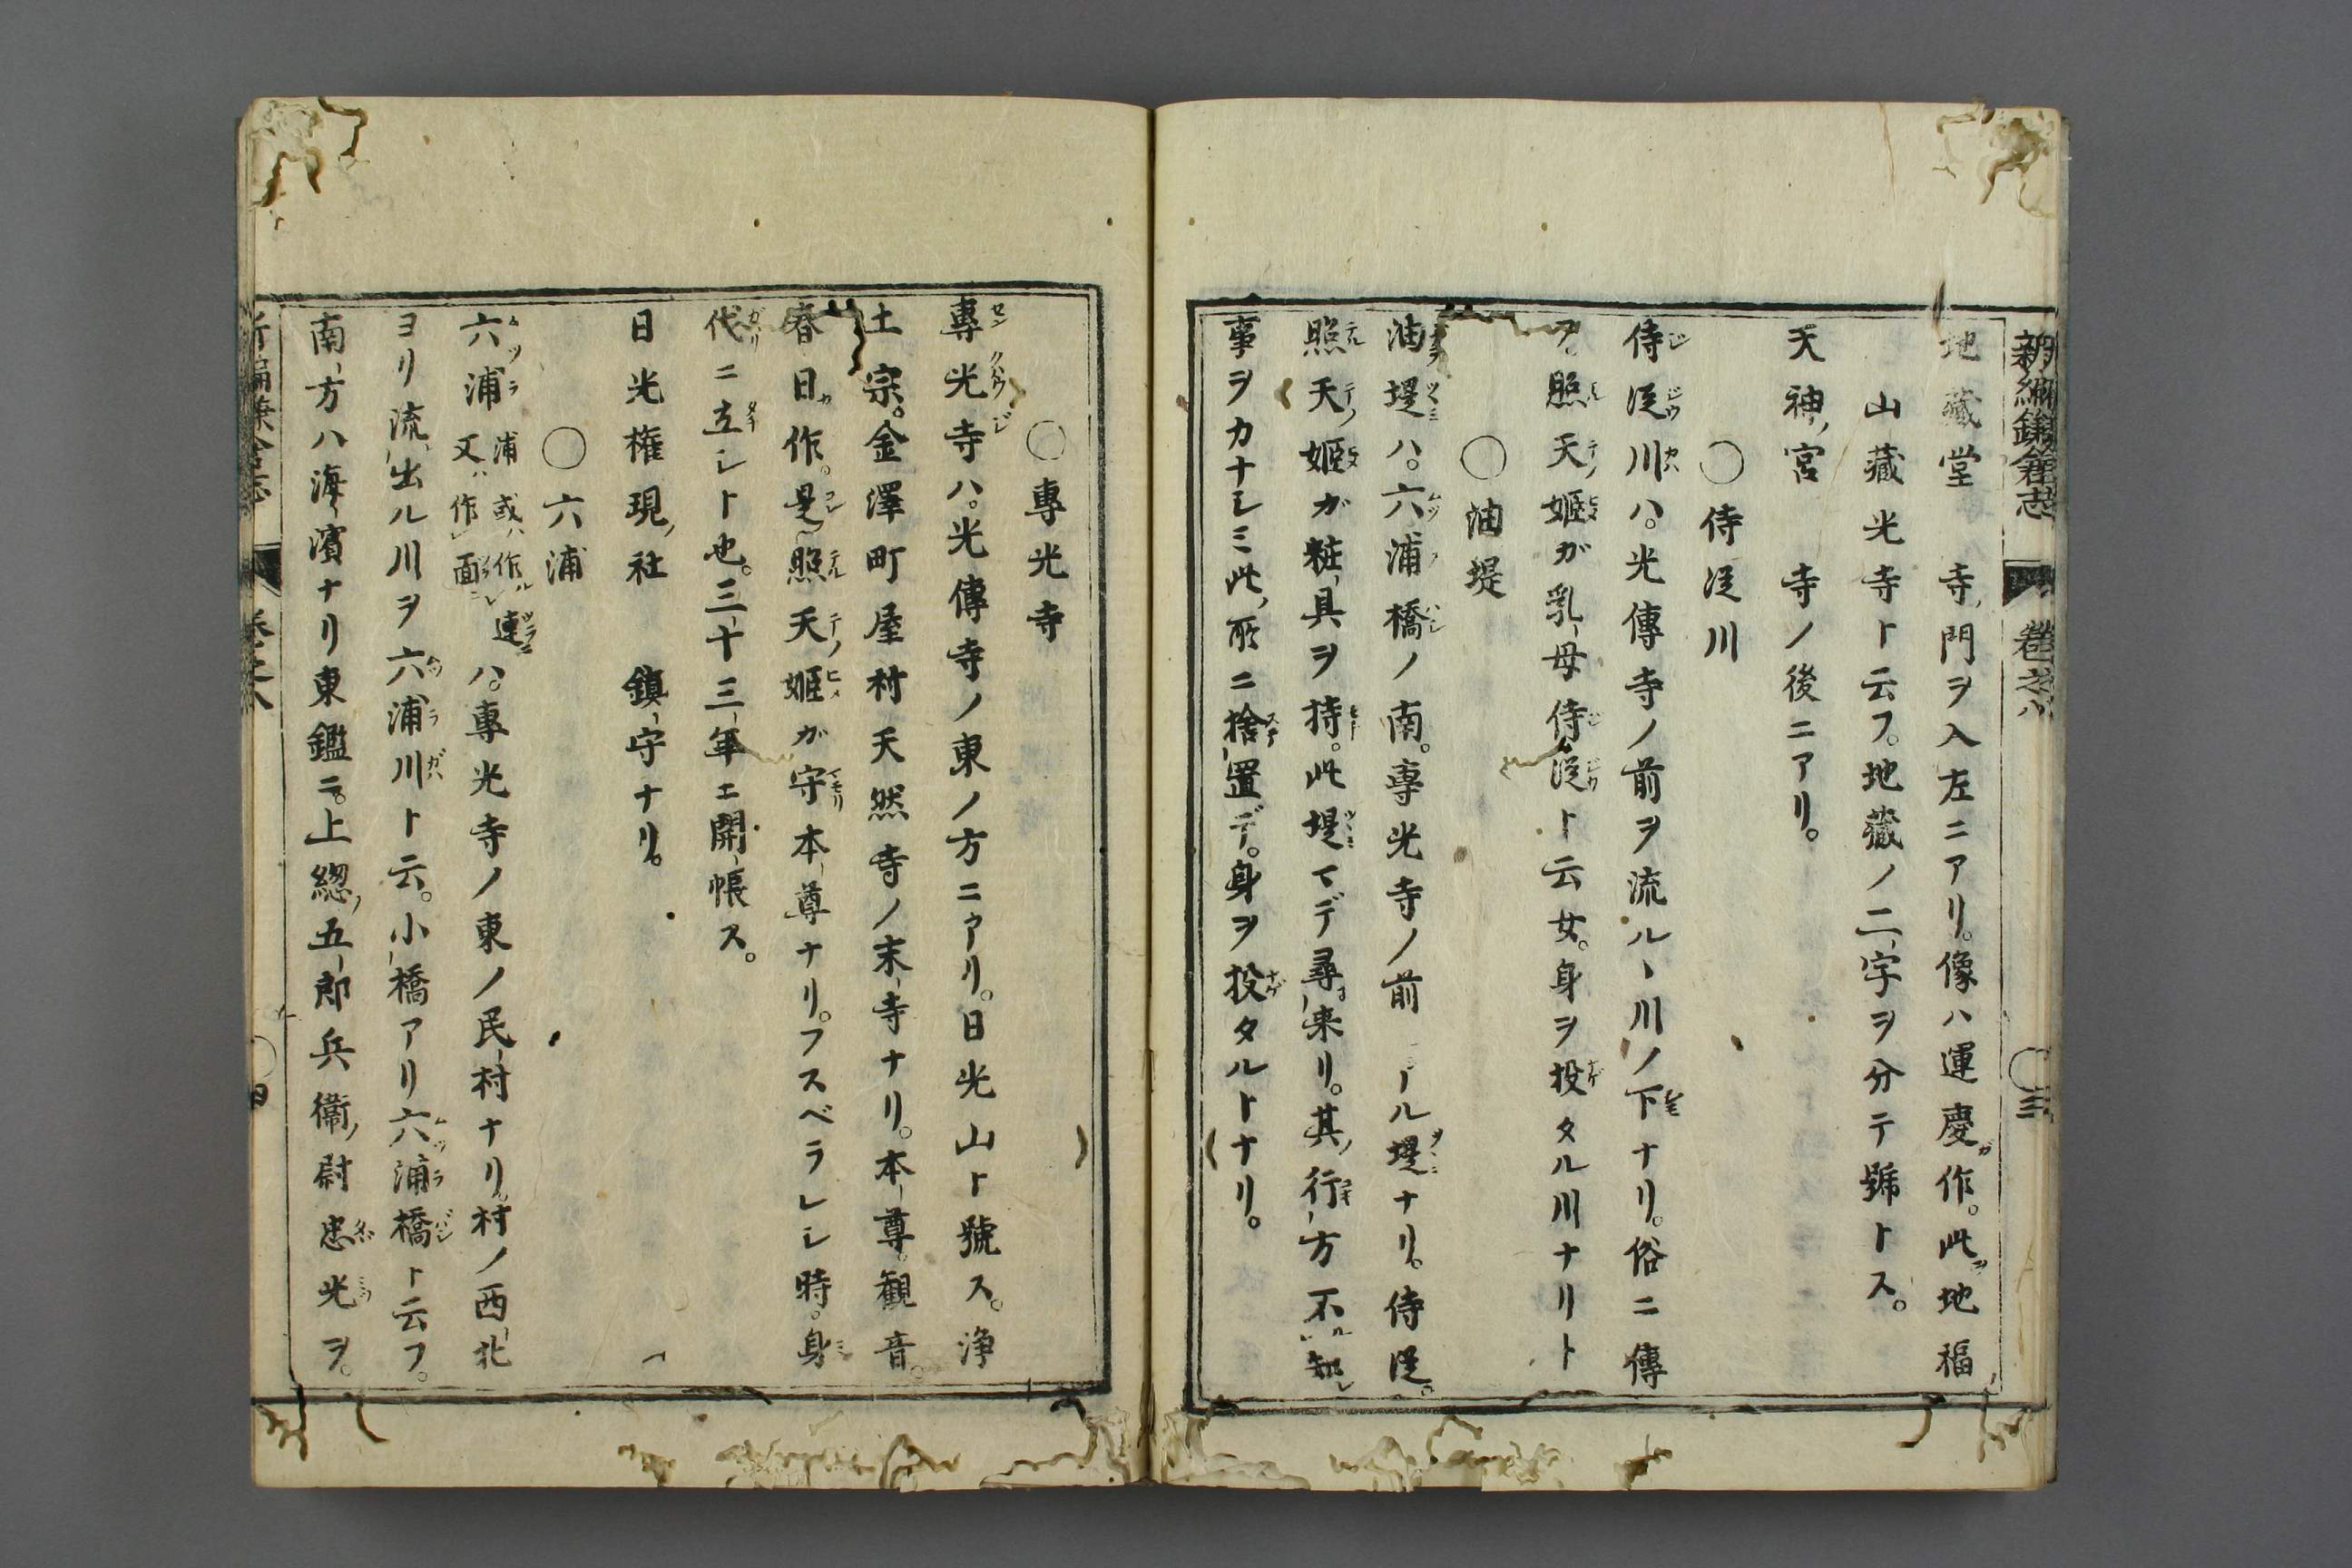 新編鎌倉志 卷之八 〇三
地藏堂 寺ノ門ヲ入左ニアリ。像ハ運慶ガ作。此ヲ地福
山藏光寺ト云フ。地藏ノ二字ヲ分テ號トス。
天神ノ宮 寺ノ後ニアリ。
〇侍從川
侍從川ハ。光傳寺ノ前ヲ流ルヽ川ノ下ナリ。俗ニ傳
フ。照天姬ガ乳母侍從ト云女。身ヲ投タル川ナリト
〇油堤
油堤ハ。六浦橋ノ南。專光寺ノ前ノル堤ナリ。侍從。
照天姬ガ粧具ヲ持。此堤マデ尋來リ。其ノ行方不知
事ヲカナシミ此ノ所ニ捨置デ。身ヲ投タルトナリ。
〇專光寺
專光寺ハ。光傳寺ノ東ノ方ニアリ。日光山ト號ス。浄
土宗。金澤町屋村天然寺ノ末寺ナリ。本尊。観音。
春日ガ作。是照天姬ガ守本尊ナリ。フスベラレシ時。身
代ニ立シト也。三十三年ニ開帳ス。
日光権現ノ社 鎮守ナリ。
〇六浦
六浦 浦或ハ作連 又ハ作面 ハ。專光寺ノ東ノ民村ナリ。村ノ西北
ヨリ流出ル川ヲ六浦川ト云。小橋アリ六浦橋ト云フ。
南ノ方ハ海濱ナリ東鑑ニ。上総ノ五郎兵衛ノ尉忠光ヲ。
新編鎌倉志 卷之八 〇四